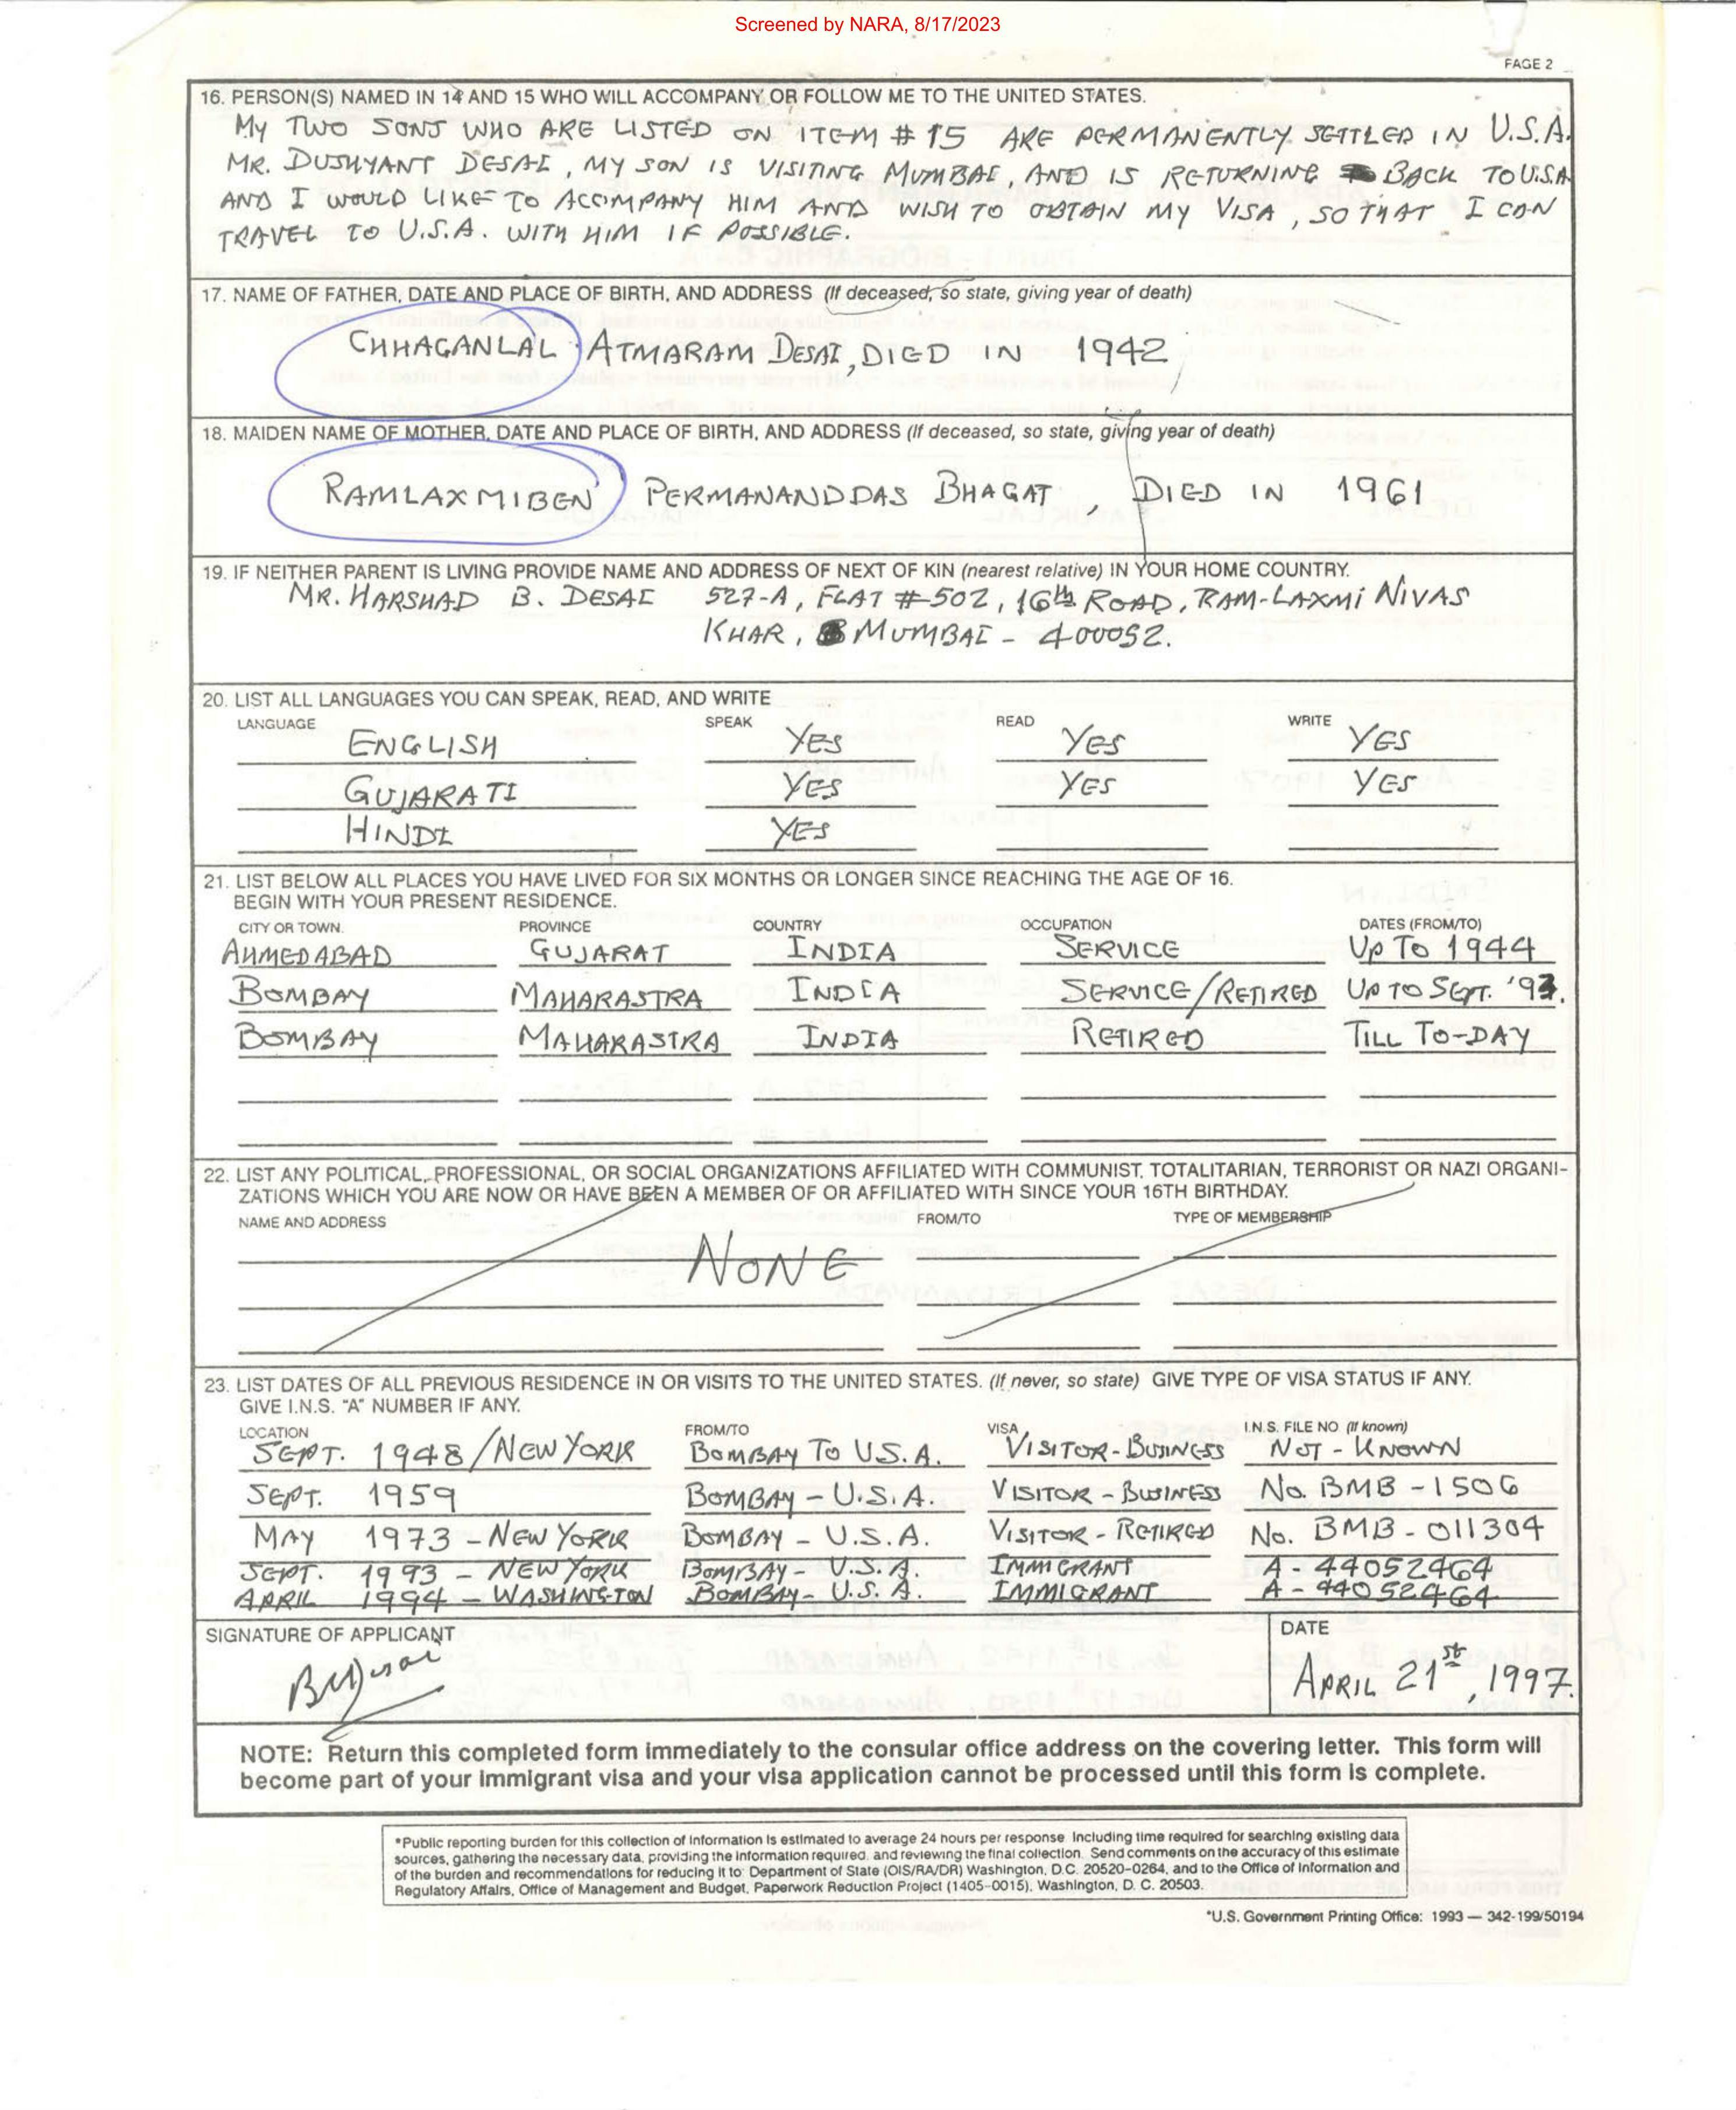 Screened by NARA, 8/17/2023
PAGE 2
16. PERSON(S) NAMED IN 14 AND 15 WHO WILL ACCOMPANY OR FOLLOW ME TO THE UNITED STATES.
MY TWO SONS WHO ARE LISTED ON ITEM # 15 ARE PERMANENTLY SETTLED IN U.S.A.
MR. DUSHYANT DESAI, MY SON IS VISITING MUMBAI, AND IS RETURNING BACK TO U.S.A
AND I WOULD LIKE TO ACCOMPANY HIM AND WISH TO OBTAIN MY VISA, SO THAT I CAN
TRAVEL TO U.S.A. WITH HIM IF POSSIBLE.
17. NAME OF FATHER, DATE AND PLACE OF BIRTH, AND ADDRESS (If deceased, so state, giving year of death)
CHHAGANLAL ATMARAM DESAI, DIED IN 1942
18. MAIDEN NAME OF MOTHER, DATE AND PLACE OF BIRTH, AND ADDRESS (If deceased, so state, giving year of death)
RAMLAXMIBEN PERMANANDDAS BHAGAT, DIED IN 1961
19. IF NEITHER PARENT IS LIVING PROVIDE NAME AND ADDRESS OF NEXT OF KIN (nearest relative) IN YOUR HOME COUNTRY.
MR. HARSHAD B. DESAI 527-A, FLAT #502, 16th ROAD, RAM-LAXMI NIVAS
KHAR, MUMBAI - 400052.
20. LIST ALL LANGUAGES YOU CAN SPEAK, READ, AND WRITE
LANGUAGE SPEAK READ WRITE
ENGLISH YES YES YES
GUJARATI YES YES YES
HINDI YES
21. LIST BELOW ALL PLACES YOU HAVE LIVED FOR SIX MONTHS OR LONGER SINCE REACHING THE AGE OF 16.
BEGIN WITH YOUR PRESENT RESIDENCE.
CITY OR TOWN. PROVINCE COUNTRY OCCUPATION DATES (FROM/TO)
AHMEDABAD GUJARAT INDIA SERVICE UP TO 1944
BOMBAY MAHARASTRA INDIA SERVICE/RETIRED UP TO SEPT. '93.
BOMBAY MAHARASTRA INDIA RETIRED TILL TO-DAY
22. LIST ANY POLITICAL, PROFESSIONAL, OR SOCIAL ORGANIZATIONS AFFILIATED WITH COMMUNIST, TOTALITARIAN, TERRORIST OR NAZI ORGANI-
ZATIONS WHICH YOU ARE NOW OR HAVE BEEN A MEMBER OF OR AFFILIATED WITH SINCE YOUR 16TH BIRTHDAY.
NAME AND ADDRESS FROM/TO TYPE OF MEMBERSHIP
NONE
23. LIST DATES OF ALL PREVIOUS RESIDENCE IN OR VISITS TO THE UNITED STATES. (If never, so state) GIVE TYPE OF VISA STATUS IF ANY.
GIVE I.N.S. "A" NUMBER IF ANY.
LOCATION FROM/TO VISA I.N.S. FILE NO (If known)
SEPT. 1948/NEW YORK BOMBAY TO U.S.A. VISITOR-BUSINESS NOT-KNOWN
SEPT. 1959 BOMBAY - U.S.A. VISITOR-BUSINESS No. BMB-1506
MAY 1973 - NEW YORK BOMBAY - U.S.A. VISITOR-RETIRED No. BMB-011304
SEPT. 1993 - NEW YORK BOMBAY - U.S.A. IMMIGRANT A-44052464
APRIL 1994 - WASHINGTON BOMBAY - U.S.A. IMMIGRANT A-44052464
SIGNATURE OF APPLICANT DATE
APRIL 21st, 1997.
NOTE: Return this completed form immediately to the consular office address on the covering letter. This form will
become part of your immigrant visa and your visa application cannot be processed until this form is complete.
*Public reporting burden for this collection of information is estimated to average 24 hours per response Including time required for searching existing data
sources, gathering the necessary data, providing the information required, and reviewing the final collection. Send comments on the accuracy of this estimate
of the burden and recommendations for reducing it to: Department of State (OIS/RA/DR) Washington, D.C. 20520-0264, and to the Office of Information and
Regulatory Affairs, Office of Management and Budget, Paperwork Reduction Project (1405-0015), Washington, D. C. 20503.
*U.S. Government Printing Office: 1993 — 342-199/50194